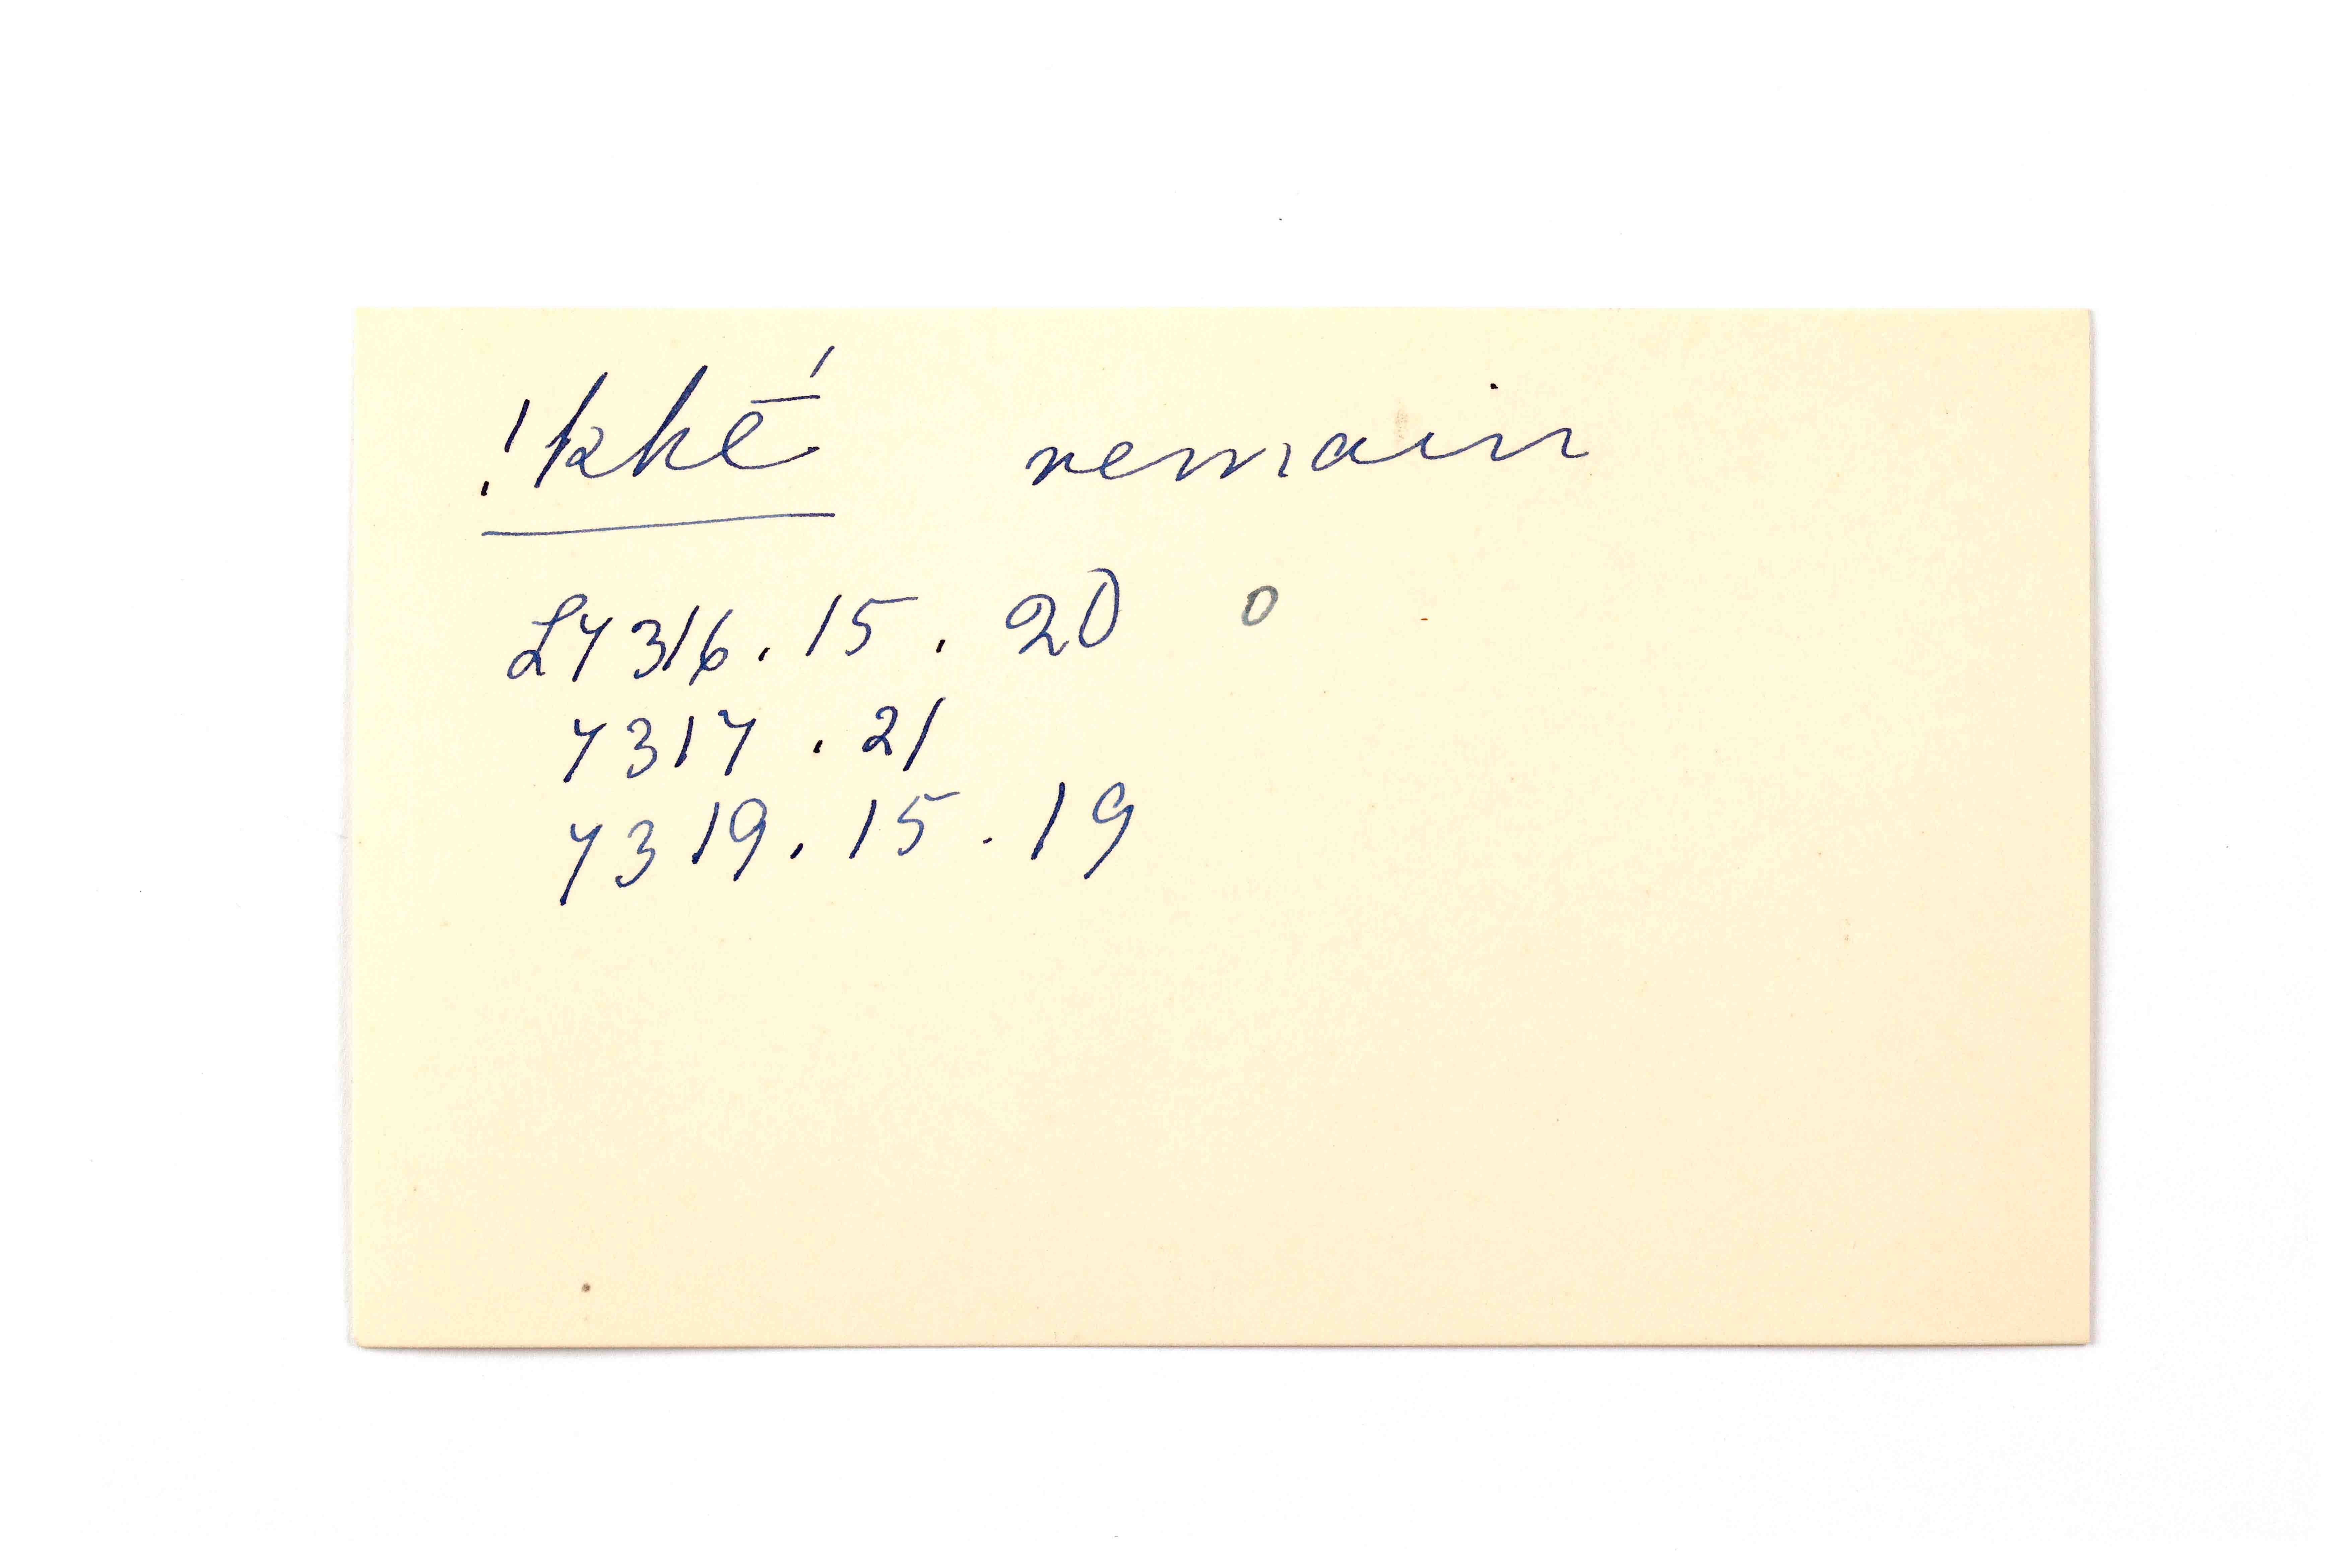 !khḗ remain
L7316.15.20 0
7317.21
7319.15.19